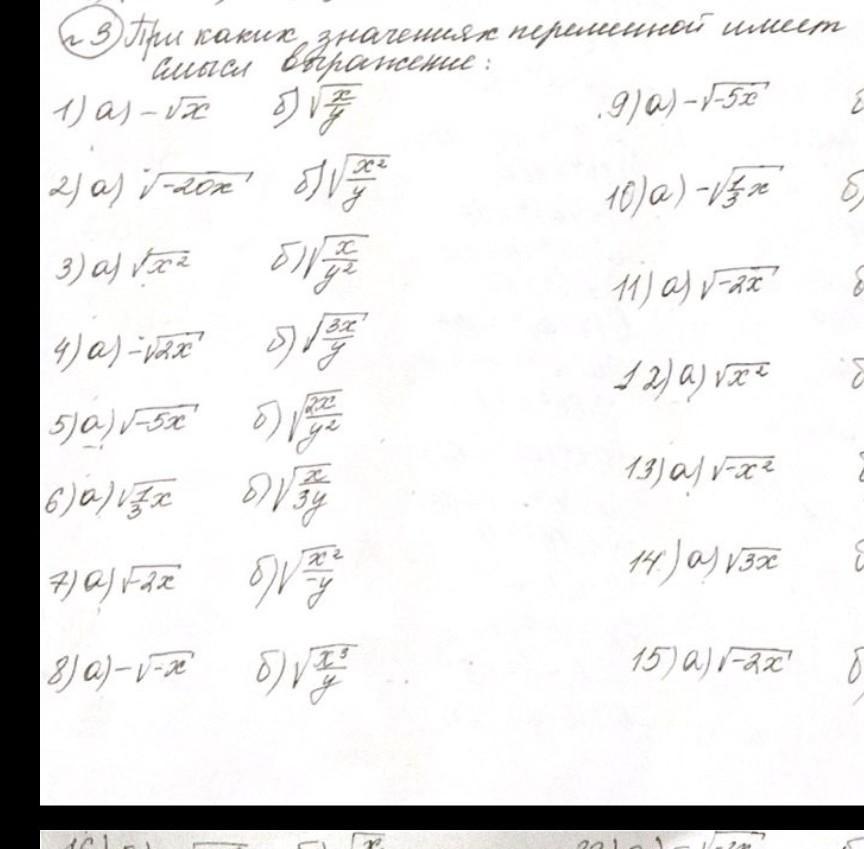 №3 При каких значениях переменной имеет
смысл выражение:
1) а) -√x б) √(x/y)
2) а) √(-20x) б) √(x²/y)
3) а) √(x²) б) √(x/y²)
4) а) -√(2x) б) √(3x/y)
5) а) √(-5x) б) √(2x/y²)
6) а) √(1/3 x) б) √(x/3y)
7) а) √(-2x) б) √(x²/-y)
8) а) -√(-x) б) √(x³/y)
9) а) -√(-5x)
10) а) -√(1/3 x) б)
11) а) √(-2x)
12) а) √(x²)
13) а) √(-x²)
14) а) √(3x)
15) а) √(-2x) б)